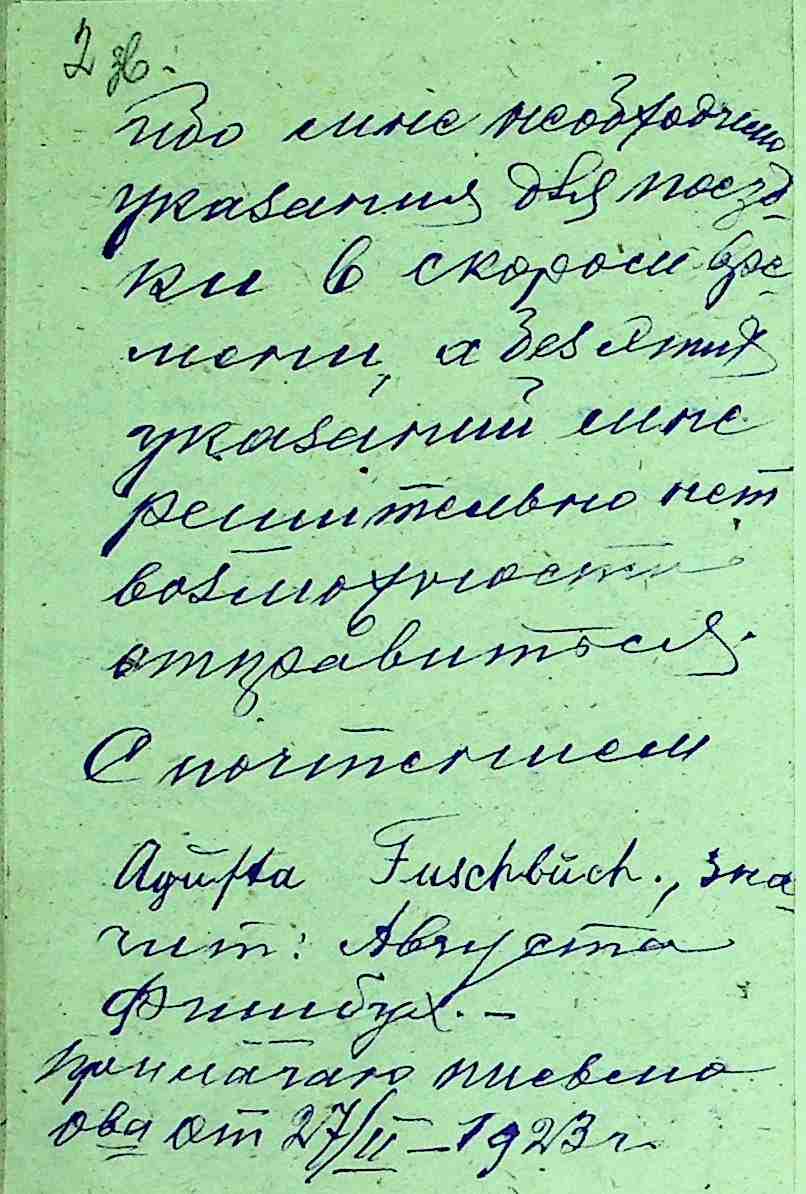 2 зв.
ибо мне необходимо
указания для поезд-
ки в скором вре-
мени, а без этих
указаний мне
решительно нет
возможности
отправиться.
С почтением
Agusta Fuschbuch., зна-
чит: Августа
Фишбух. -
Прилагаю письмо
от 27/II - 1923 г.